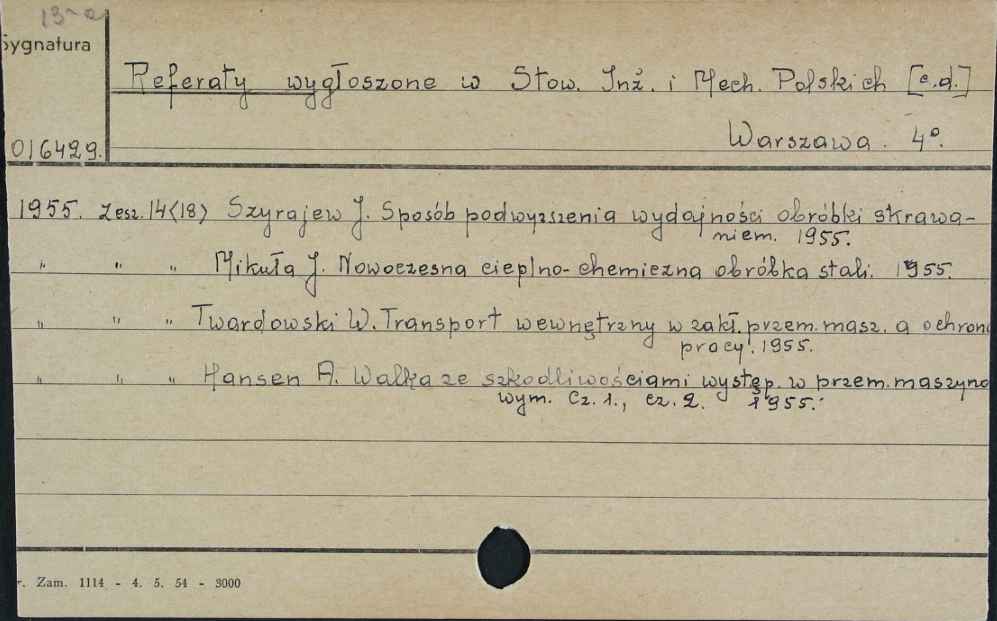 13-a
Sygnatura
Referaty wygłoszone w Stow. Inż. i Mech. Polskich [c.d.]
016429.
Warszawa. 4°.
1955. Zesz. 14<18> Szyrajew J. Sposób podwyzszenia wydajności obróbki skrawa-
niem. 1955.
" " " Mikuła J. Nowoczesna cieplno-chemiczna obróbka stali. 1955.
" " " Twardowski W. Transport wewnętrzny w zakł. przem. masz. a ochrona
pracy. 1955.
" " " Hansen A. Walka ze szkodliwościami występ. w przem. maszyno
wym. Cz. 1., cz. 2. 1955.
r. Zam. 1114 - 4. 5. 54 - 3000